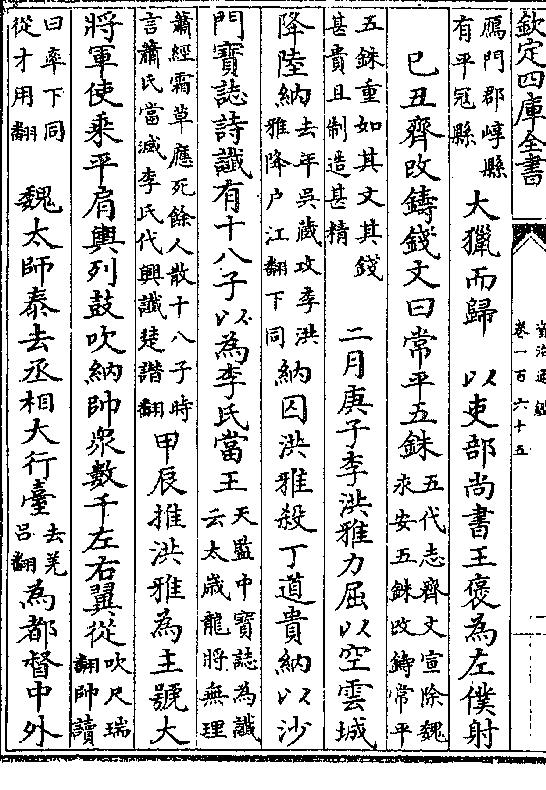 欽定四庫全書
資治通鑑
卷一百六十五
一
鴈門郡崞縣
有平冦縣
大獵而歸 以吏部尚書王褒為左僕射
巳丑齊改鑄錢文曰常平五銖
五代志齊文宣除魏
永安五銖改鑄常平
五銖重如其文其錢
甚貴且制造甚精
二月庚子李洪雅力屈以空雲城
降陸納
去年吳藏攻李洪
雅降户江翻下同
納囚洪雅殺丁道貴納以沙
門寶誌詩讖有十八子以為李氏當王
天監中寶誌為讖
云太歲龍將無理
蕭經霜草應死餘人散十八子時
言蕭氏當滅李氏代興讖楚譖翻
甲辰推洪雅為主號大
將軍使乘平肩輿列鼓吹納帥衆數千左右翼從
吹尺瑞
翻帥讀
曰率下同
從才用翻
魏太師泰去丞相大行臺
去羌
吕翻
為都督中外